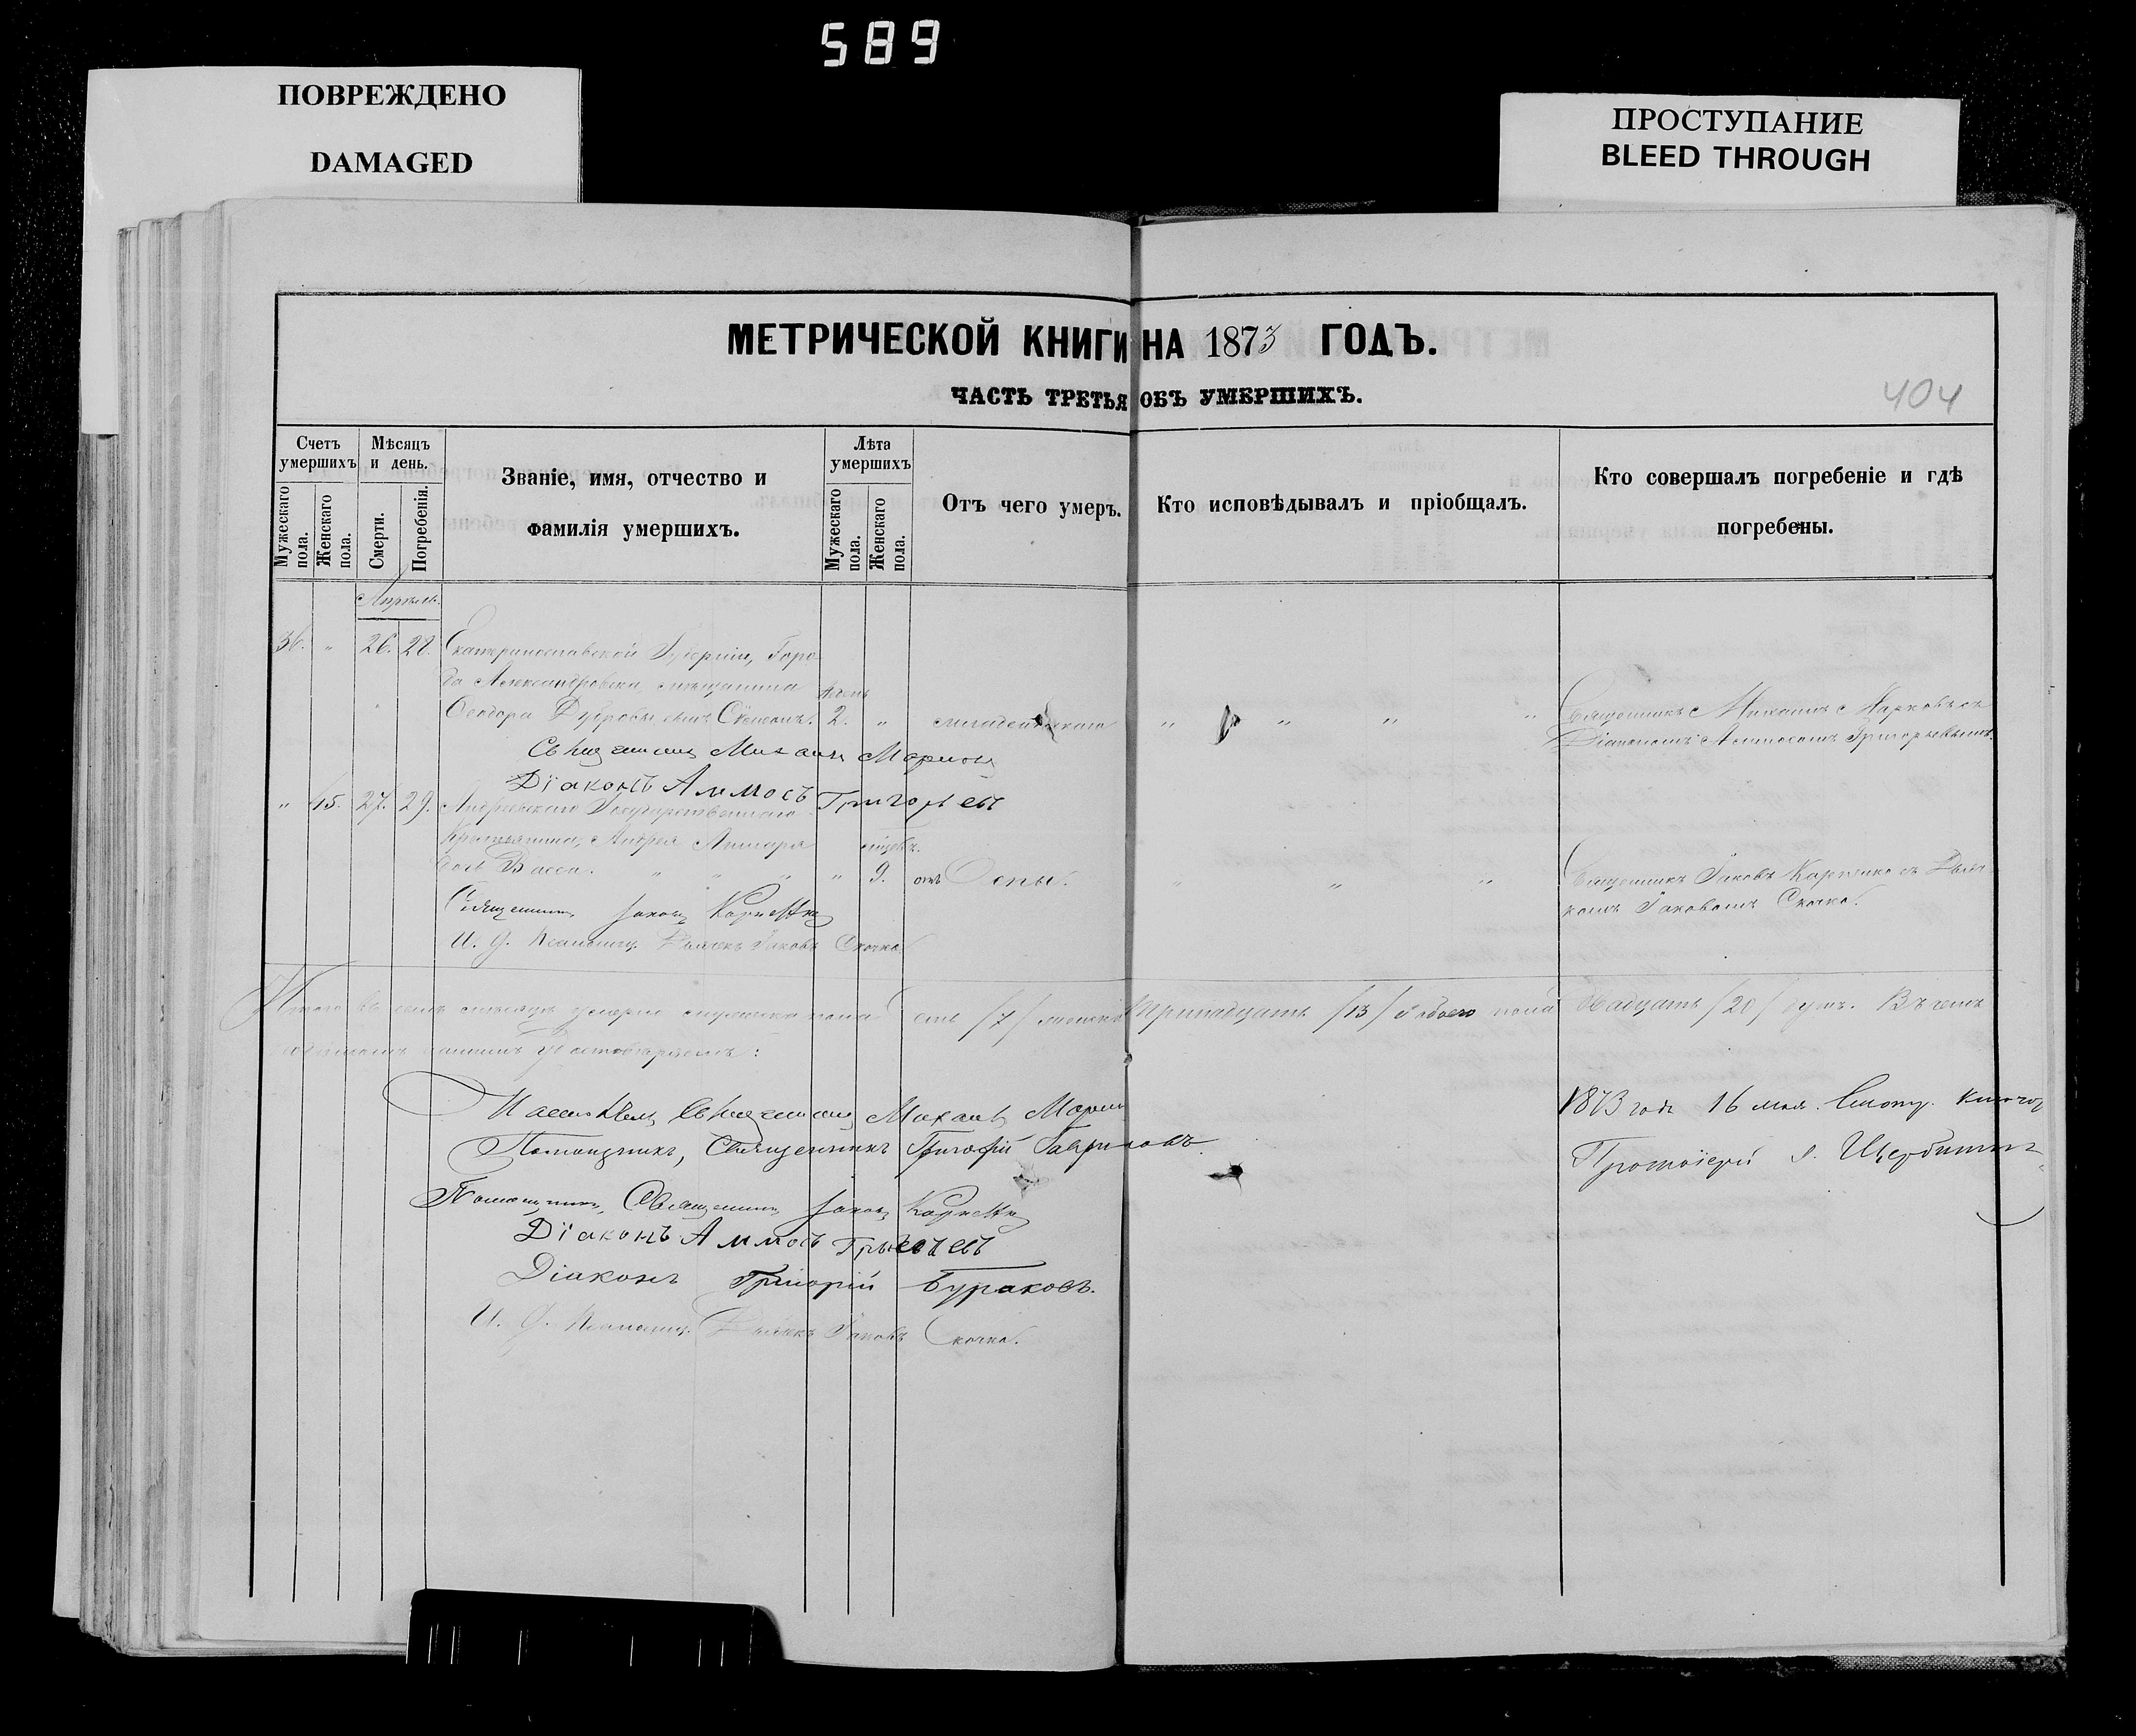 589
ПОВРЕЖДЕНО
DAMAGED
ПРОСТУПАНИЕ
BLEED THROUGH
МЕТРИЧЕСКОЙ КНИГИ НА 1873 ГОДЪ.
ЧАСТЬ ТРЕТЬЯ ОБЪ УМЕРШИХЪ.
404
Счетъ умершихъ
Мужескаго пола.
Женскаго пола.
Мѣсяцъ и день.
Смерти.
Погребенія.
Званіе, имя, отчество и фамилія умершихъ.
Лѣта умершихъ
Мужескаго пола.
Женскаго пола.
Отъ чего умеръ.
Кто исповѣдывалъ и пріобщалъ.
Кто совершалъ погребеніе и гдѣ погребены.
Апрѣль
36. " 26. 28. Екатеринославской Губерніи, Горо-
да Александровска, мѣщанина
Феодора сынъ 2. " " " " " Священникъ Михаилъ Марковъ съ
Діакономъ Аммосомъ Григорьевымъ.
Священникъ Михаилъ
Діаконъ Аммосъ Григорьевъ
" 15. 27. 29. Андреевскаго Государственнаго
Крестьянина, Андрея
дочь Васса. " " " " 9. отъ Оспы. " " " Священникъ Іаковъ Карпенко съ
Іаковомъ Скочко.
Священникъ Іаковъ Карпенко
И. д. Іаковъ Скочко
Итого въ семъ мѣсяцѣ умерло мужеска пола семь /7/ женска тринадцать /13/ обоего пола двадцать /20/ душъ. Въ чемъ
:
Священникъ Михаилъ
Помощникъ, Священникъ Григорій Гавриловъ.
Помощникъ, Священникъ Іаковъ Карпенко
Діаконъ Аммосъ Григорьевъ
Діаконъ Григорій Бураковъ.
И. д. Іаковъ Скочко.
1873 года 16 мая.
Протоіерей